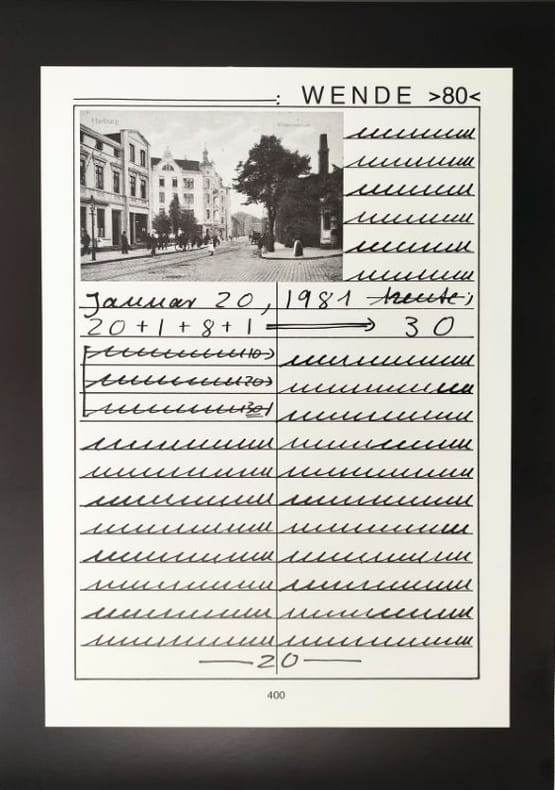 : WENDE >80<
Harburg
Januar 20, 1981 heute;
20+1+8+1 ⟹ 30
10
20
30
— 20 —
400